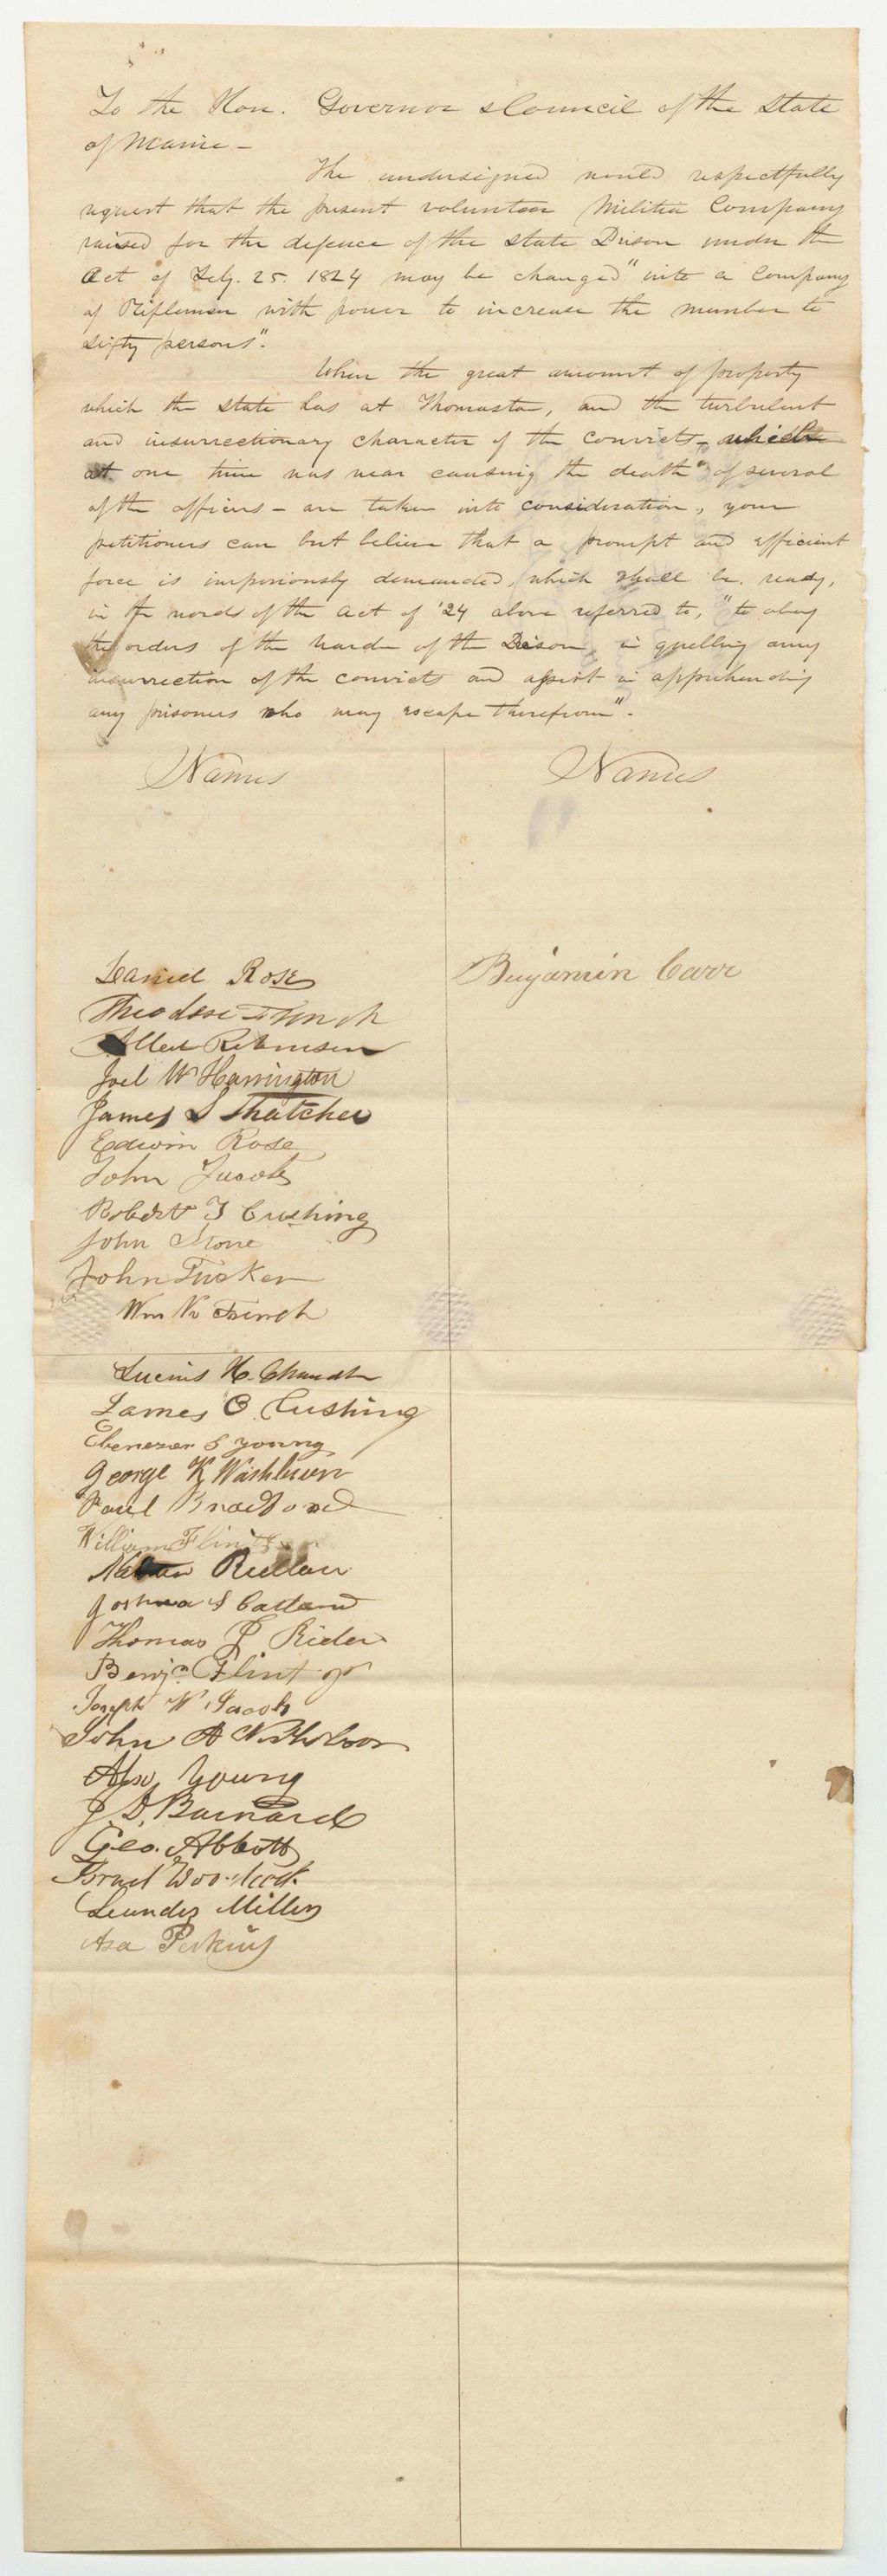 To the Hon. Governor & Council of the State
of Maine -
The undersigned would respectfully
request that the present volunteer Militia Company
raised for the defence of the State Prison under the
Act of Feby. 25. 1824 may be changed "into a Company
of Riflemen with power to increase the number to
sixty persons".
When the great amount of property
which the State has at Thomaston, and the turbulent
and insurrectionary character of the convicts - which
at one time was near causing the death of several
of the officers - are taken into consideration, your
petitioners can but believe that a prompt and efficient
force is imperiously demanded, which shall be ready,
in the words of the Act of '24 above referred to, "to obey
the orders of the Warden of the Prison, in quelling any
insurrection of the convicts and assist in apprehending
any prisoners who may escape therefrom".
Names
Names
Daniel Rose
Benjamin Carr
French
Robinson
Joel W Harrington
James S Thatcher
Edwin Rose
John Jacobs
Robert T Cushing
John Stone
John Tucker
Wm French
Lucius H. Chandler
James O. Cushing
Ebenezer S Young
George K Washburn
Paul
William Flint
Joshua S
Thomas J Rider
Benjn Flint Jr
Joseph W Jacobs
John A Nicholson
Young
J. D. Barnard
Geo. Abbott
Israel Woodcock
Leander Miller
Asa Perkins